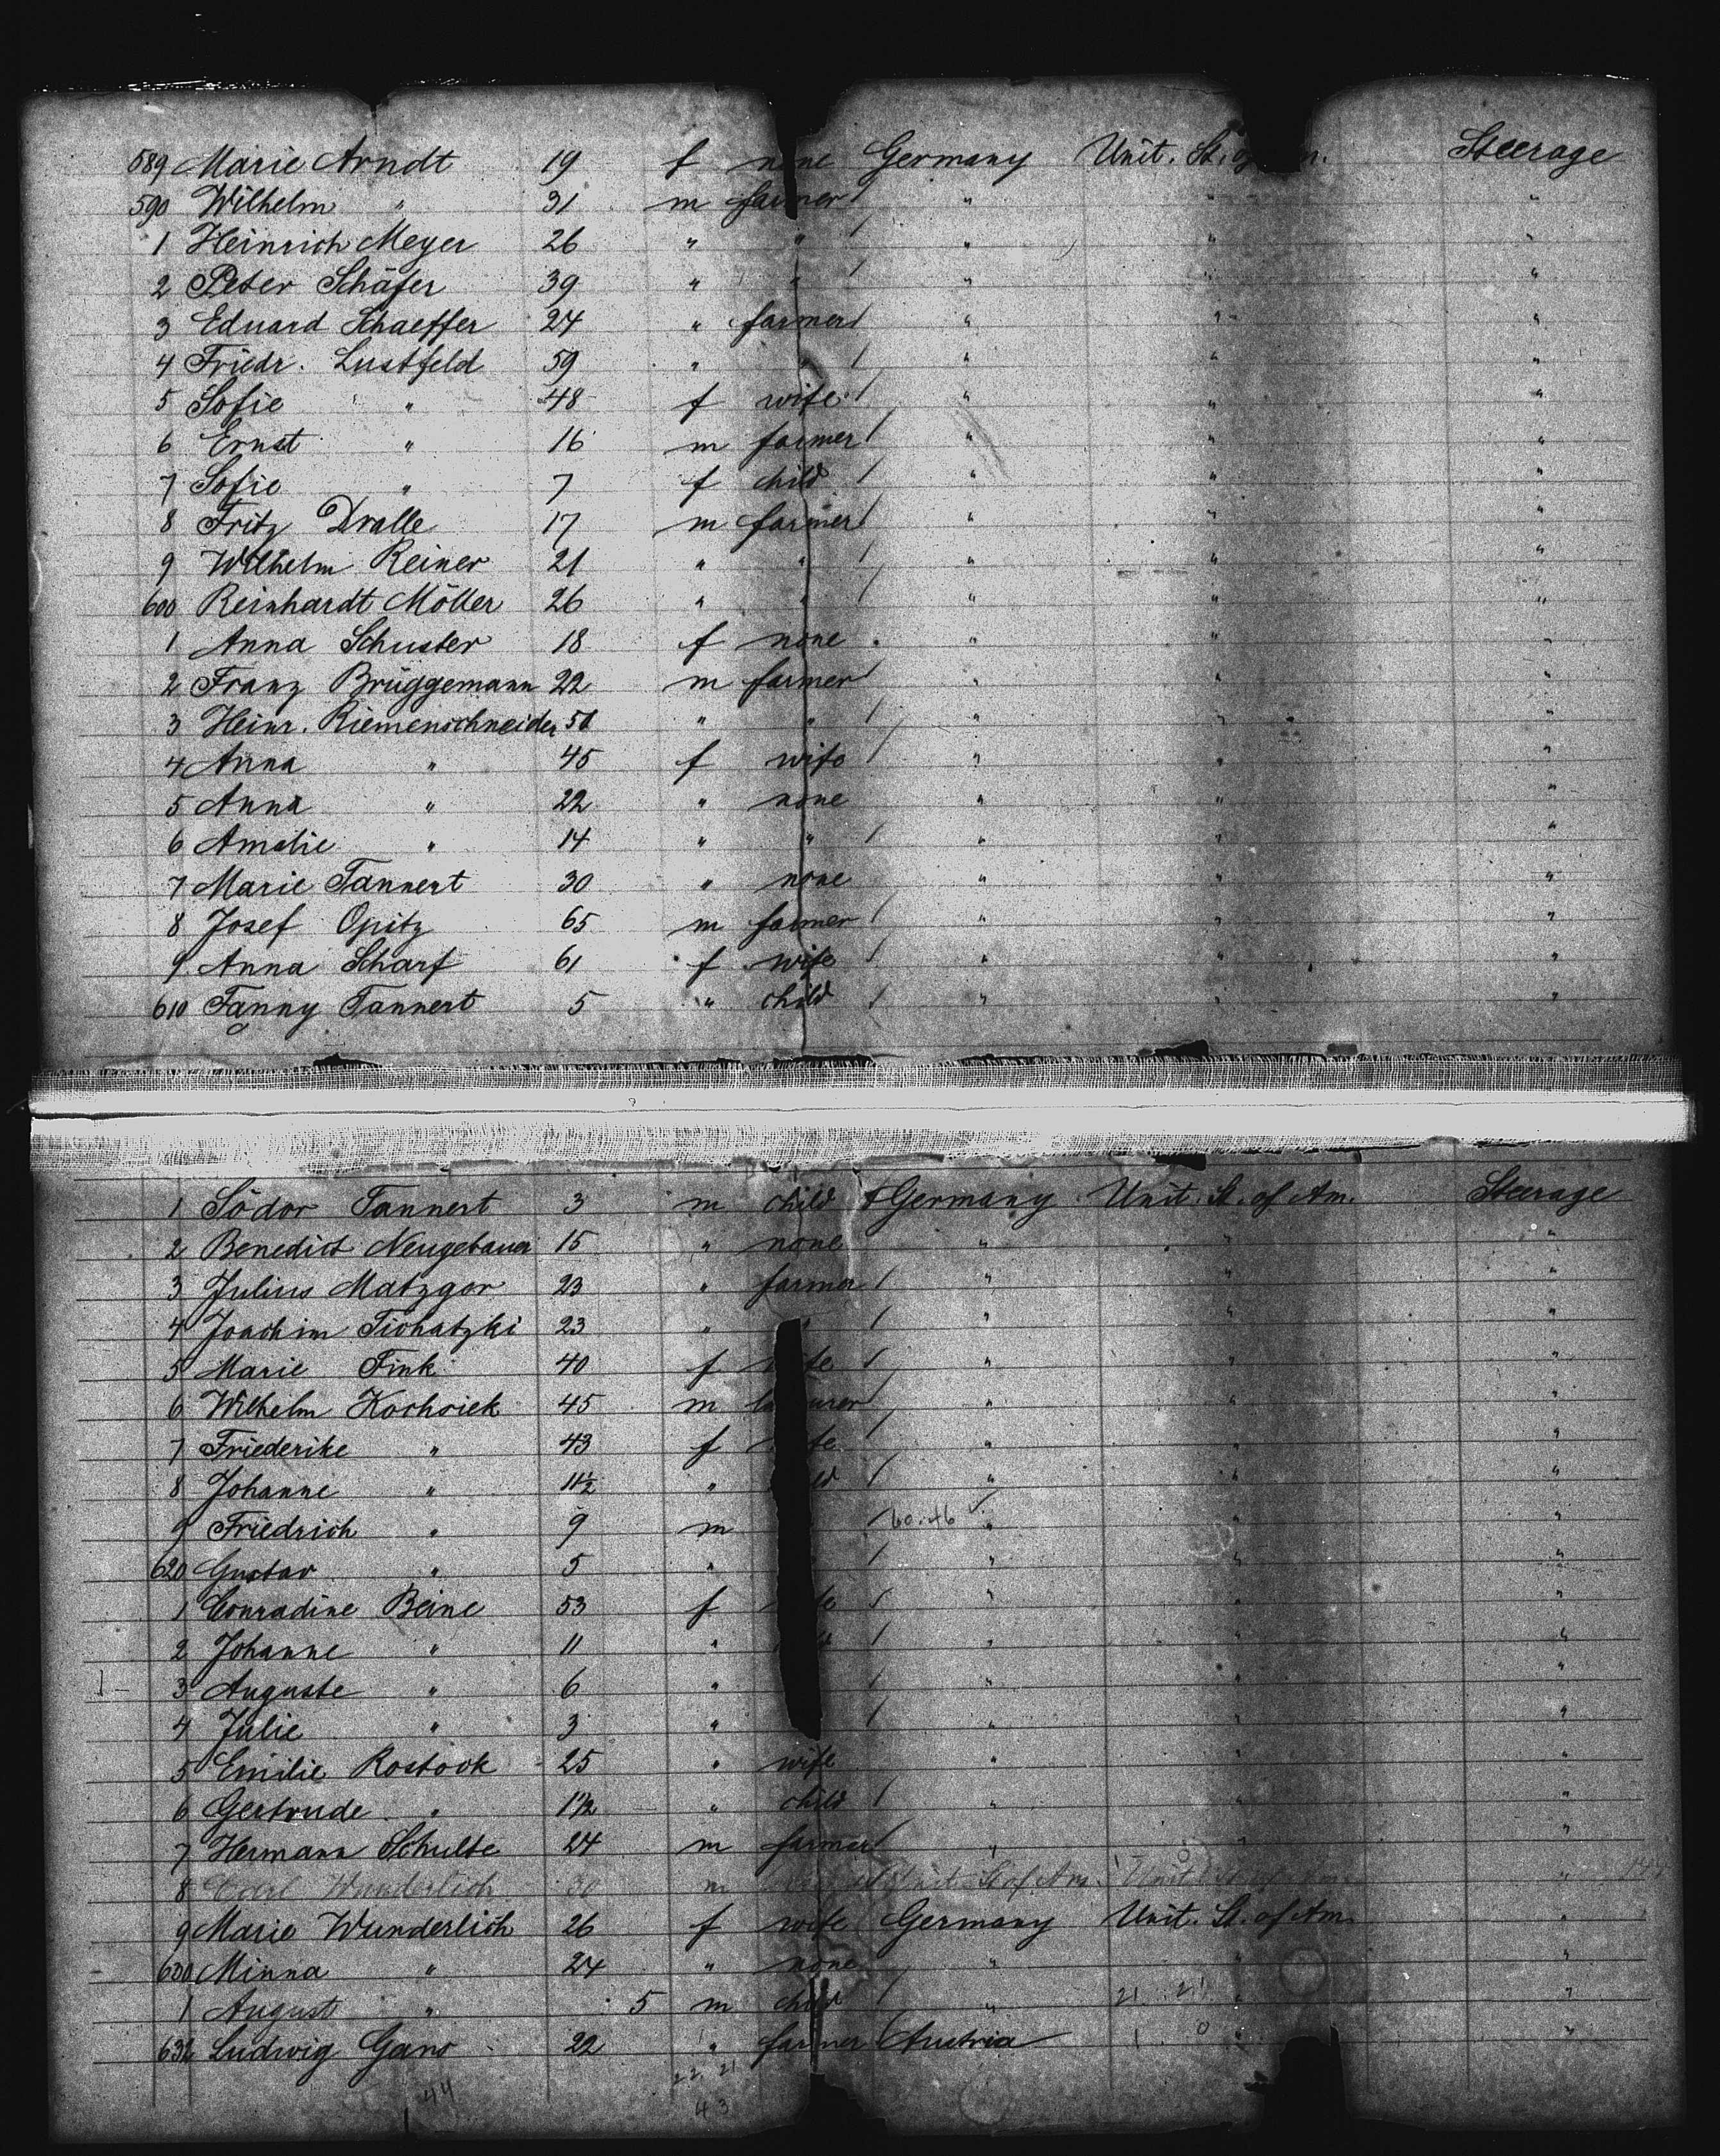 589 Marie Arndt 19 f none Germany Unit. St. of Steerage
590 Wilhelm " 31 m farmer " " "
1 Heinrich Meyer 26 " " " " "
2 Peter Schäfer 39 " " " " "
3 Eduard Schaeffer 24 " farmer " " "
4 Friedr. Lustfeld 59 " " " " "
5 Sofie " 48 f wife " " "
6 Ernst " 16 m farmer " " "
7 Sofie " 7 f child " " "
8 Fritz Dralle 17 m farmer " " "
9 Wilhelm Reiner 21 " " " " "
600 Reinhardt Möller 26 " " " " "
1 Anna Schuster 18 f none " " "
2 Franz Brüggemann 22 m farmer " " "
3 Heinr. Riemenschneider 51 " " " " "
4 Anna " 45 f wife " " "
5 Anna " 22 " none " " "
6 Amalie " 14 " " " " "
7 Marie Tannert 30 " none " " "
8 Josef Opitz 65 m farmer " " "
9 Anna Scharf 61 f wife " " "
610 Fanny Tannert 5 " child " " "
1 Södor Tannert 3 m child Germany Unit. St. of Am. Steerage
2 Benedict Neugebauer 15 " none " " "
3 Julius Matzger 23 " farmer " " "
4 Joachim Tichatzki 23 " " " "
5 Marie Fink 40 f " " "
6 Wilhelm Kochsiek 45 m " " "
7 Friederike " 43 f " " "
8 Johanne " 11½ " " " "
9 Friedrich " 9 m " " "
620 Gustav " 5 " " " "
1 Conradine Beine 53 f " " "
2 Johanne " 11 " " " "
3 Auguste " 6 " " " "
4 Julie " 3 " " " "
5 Emilie Rostock 25 " wife " " "
6 Gertrude " 1½ " child " " "
7 Hermann Schulte 24 m farmer " " "
8 Carl Wunderlich 30 m Unit. St. of Am. Unit. St. of Am. "
9 Marie Wunderlich 26 f wife Germany Unit. St. of Am. "
630 Minna " 24 " none " " "
1 August " 5 m child " " "
632 Ludwig Gans 22 " farmer Austria " "
44
22 21
43